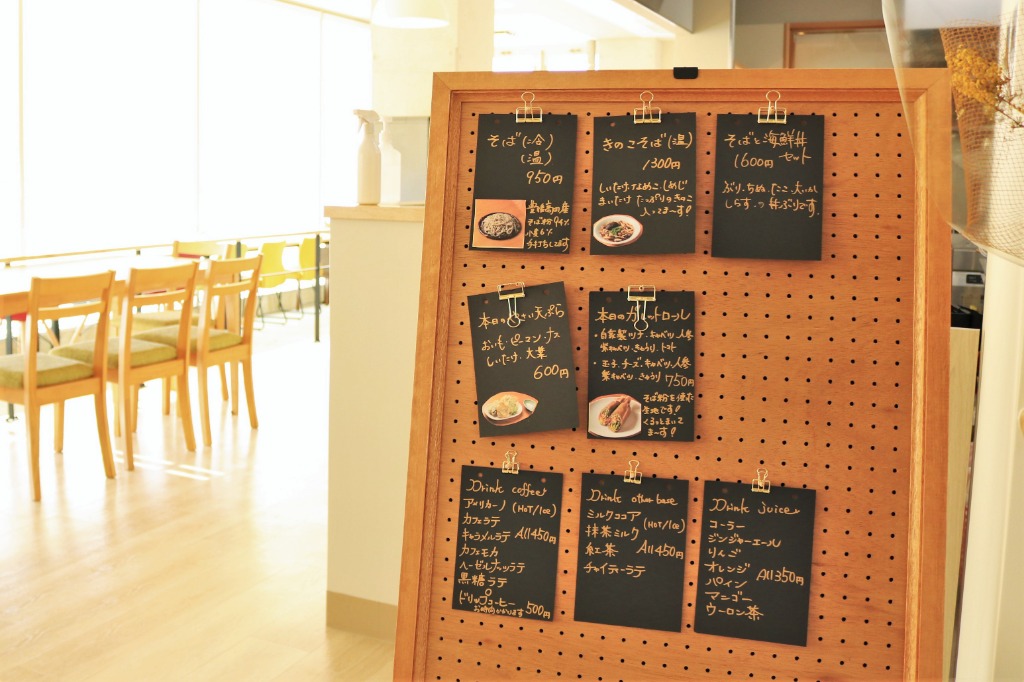 そば(冷)
(温)
950円
そば粉94%
小麦6%
手打ちしてます
きのこそば(温)
1300円
しいたけ、なめこ、しめじ
まいたけ たっぷりのきのこ
入ってまーす!
そばと海鮮丼
1600円 セット
ぶり、ちぬ、たこ、大いか
しらす、の丼ぶりです。
本日の 天ぷら
おいも、ピーマン、ナス
しいたけ、大葉
600円
本日のガレットロール
・自家製ツナ、キャベツ、人参
紫キャベツ、きゅうり、トマト
・玉子、チーズ、キャベツ、人参
紫キャベツ、きゅうり 750円
そば粉を使った
生地です!
くるっとまいて
まーす!
Drink coffee
アメリカーノ (HOT/Ice)
カフェラテ
キャラメルラテ All450円
カフェモカ
ヘーゼルナッツラテ
黒糖ラテ
ドリップコーヒー
お時間かかります 500円
Drink other base
ミルクココア
抹茶ミルク (HOT/Ice)
紅茶 All450円
チャイティーラテ
Drink juice
コーラー
ジンジャーエール
りんご
オレンジ All350円
パイン
マンゴー
ウーロン茶